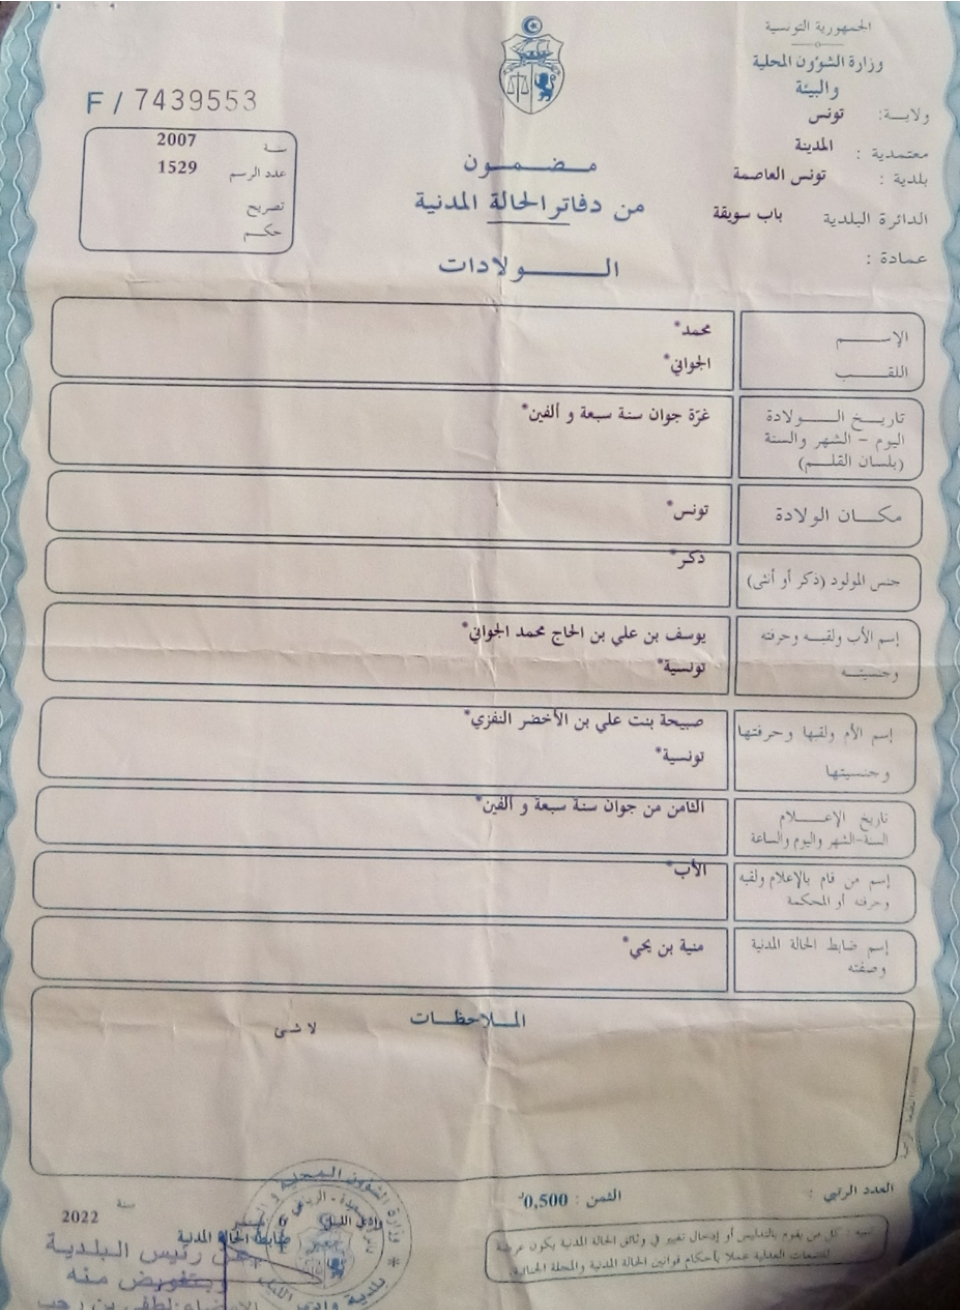 الجمهورية التونسية
وزارة الشؤون المحلية
والبيئة
ولاية: تونس
معتمدية : المدينة
بلدية : تونس العاصمة
الدائرة البلدية باب سويقة
عمادة :
F / 7439553
سنة 2007
عدد الرسم 1529
تصريح
حكم
مضمون
من دفاتر الحالة المدنية
الولادات
الإسم محمد*
اللقب الجواني*
تاريخ الولادة غرّة جوان سنة سبعة و ألفين*
اليوم - الشهر والسنة
(بلسان القلم)
مكان الولادة تونس*
جنس المولود (ذكر أو أنثى) ذكر*
إسم الأب ولقبه وحرفته يوسف بن علي بن الحاج محمد الجواني*
وجنسيته تونسية*
إسم الأم ولقبها وحرفتها صبيحة بنت علي بن الأخضر النفزي*
وجنسيتها تونسية*
تاريخ الإعلام الثامن من جوان سنة سبعة و ألفين*
السنة-الشهر واليوم والساعة
إسم من قام بالإعلام ولقبه الأب*
وحرفته أو المحكمة
إسم ضابط الحالة المدنية منية بن يحي*
وصفته
الملاحظات
لا شى
العدد الرتبي :
الثمن : 0,500د
تنبيه : كل من يقوم بالتدليس أو إدخال تغيير في وثائق الحالة المدنية يكون عرضة
للتتبعات العدلية عملا بأحكام قوانين الحالة المدنية والمجلة الجنائية.
سنة
2022
وادي الليل 6
ضابط الحالة المدنية
وزارة الشؤون المحلية و
بلدية وادي الليل
عن رئيس البلدية
وبتفويض منه
الإمضاء: لطفي بن رجب